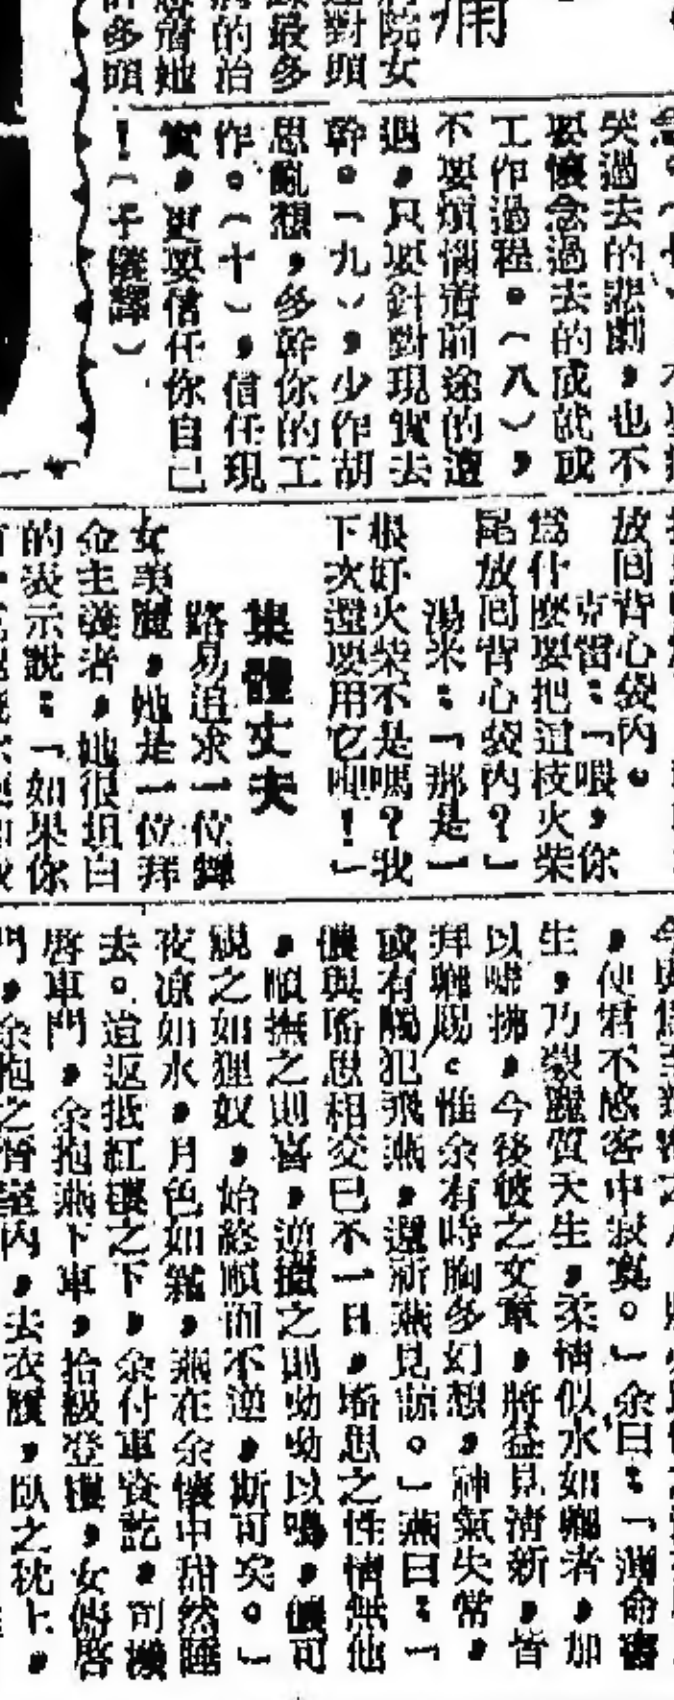 院女
對頭
最多
的治
她
多頭
哭過去的悲劇,也不
要懷念過去的成就或
工作過程。(八),
不要煩惱着前途的遭
遇,只要針對現實去
幹。(九),少作胡
思亂想,多幹你的工
作。(十),信任現
實,更要信任你自己
!(千譯)
放回背心袋內。
克雷:「喂,你
爲什麽要把這枝火柴
尾放回背心袋內?」
湯米:「那是一
根好火柴不是嗎?我
下次還要用它呢!」
集體丈夫
路易追求一位舞
女美麗,她是一位拜
金主義者,她很坦白
的表示說:「如果你
,使君不感客中寂寞。」余曰:「
生,乃裴麗質天生,柔情似水如者,加
以拂,今後彼之文章,將益見清新,皆
拜賜。惟余有時胸多幻想,神氣失常,
或有觸犯飛燕,還祈燕見諒。」燕曰:「
儂與瑤思相交已不一日,瑤思之性情無他
,順撫之則喜,逆攝之則呦呦以鳴,儂可
視之如狸奴,始終順而不逆,斯可矣。」
夜凉如水,月色如,燕在余懷中甜然睡
去。返抵紅樓之下,余付車資訖,司
啓車門,余抱燕下車,拾級登樓,女傭啓
門,余抱之室內,去衣履,臥之枕上,